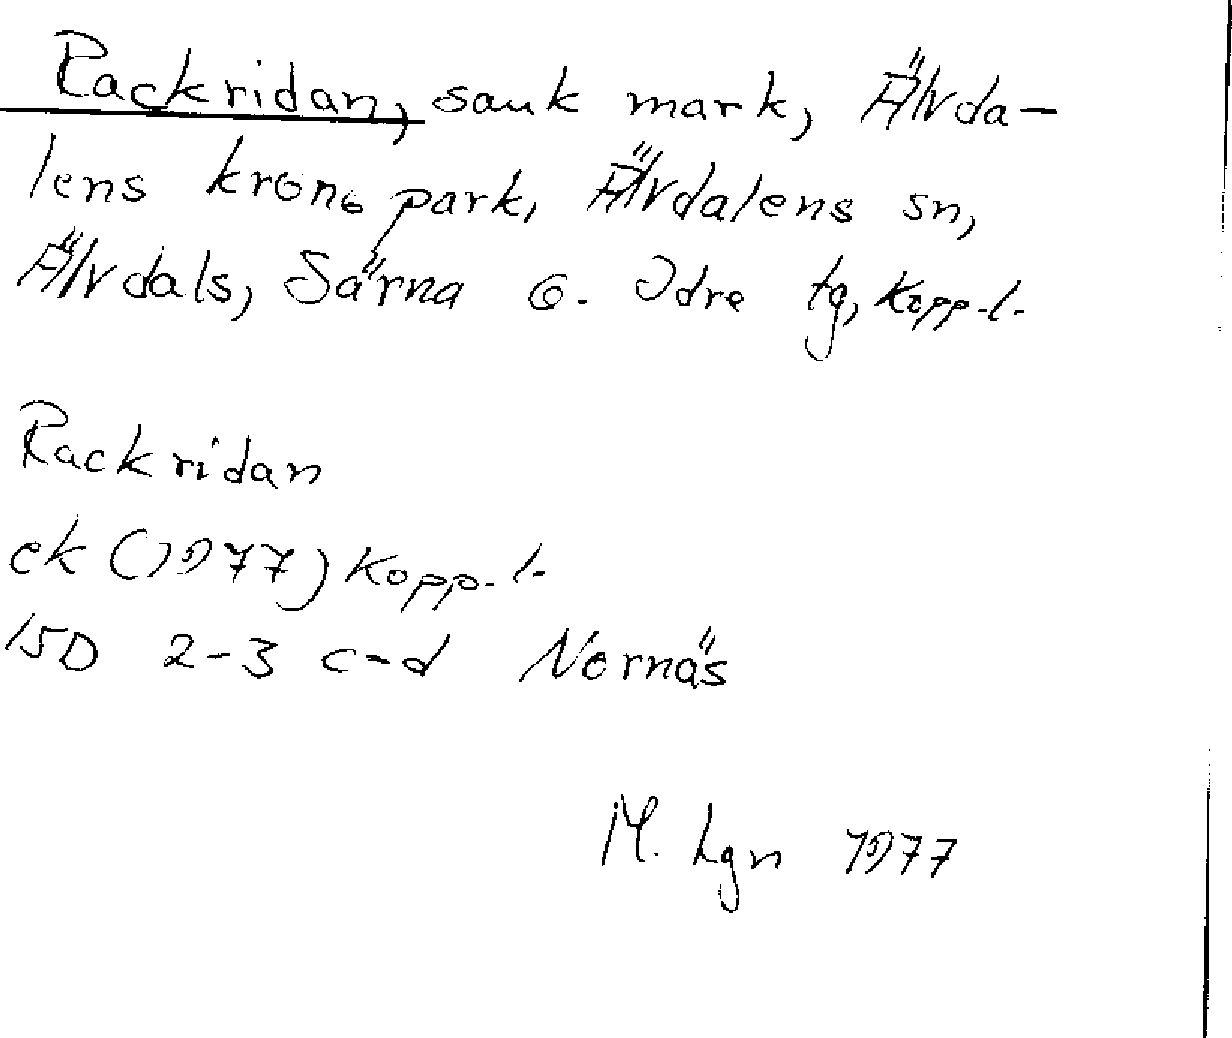 Rackridan, sank mark, Älvda-
lens kronopark, Älvdalens sn,
Älvdals, Särna o. Idre tg, Kopp.l.
Rackridan
ek (1977) Kopp.l.
15D 2-3 c-d Nornäs
M. Lgn 1977